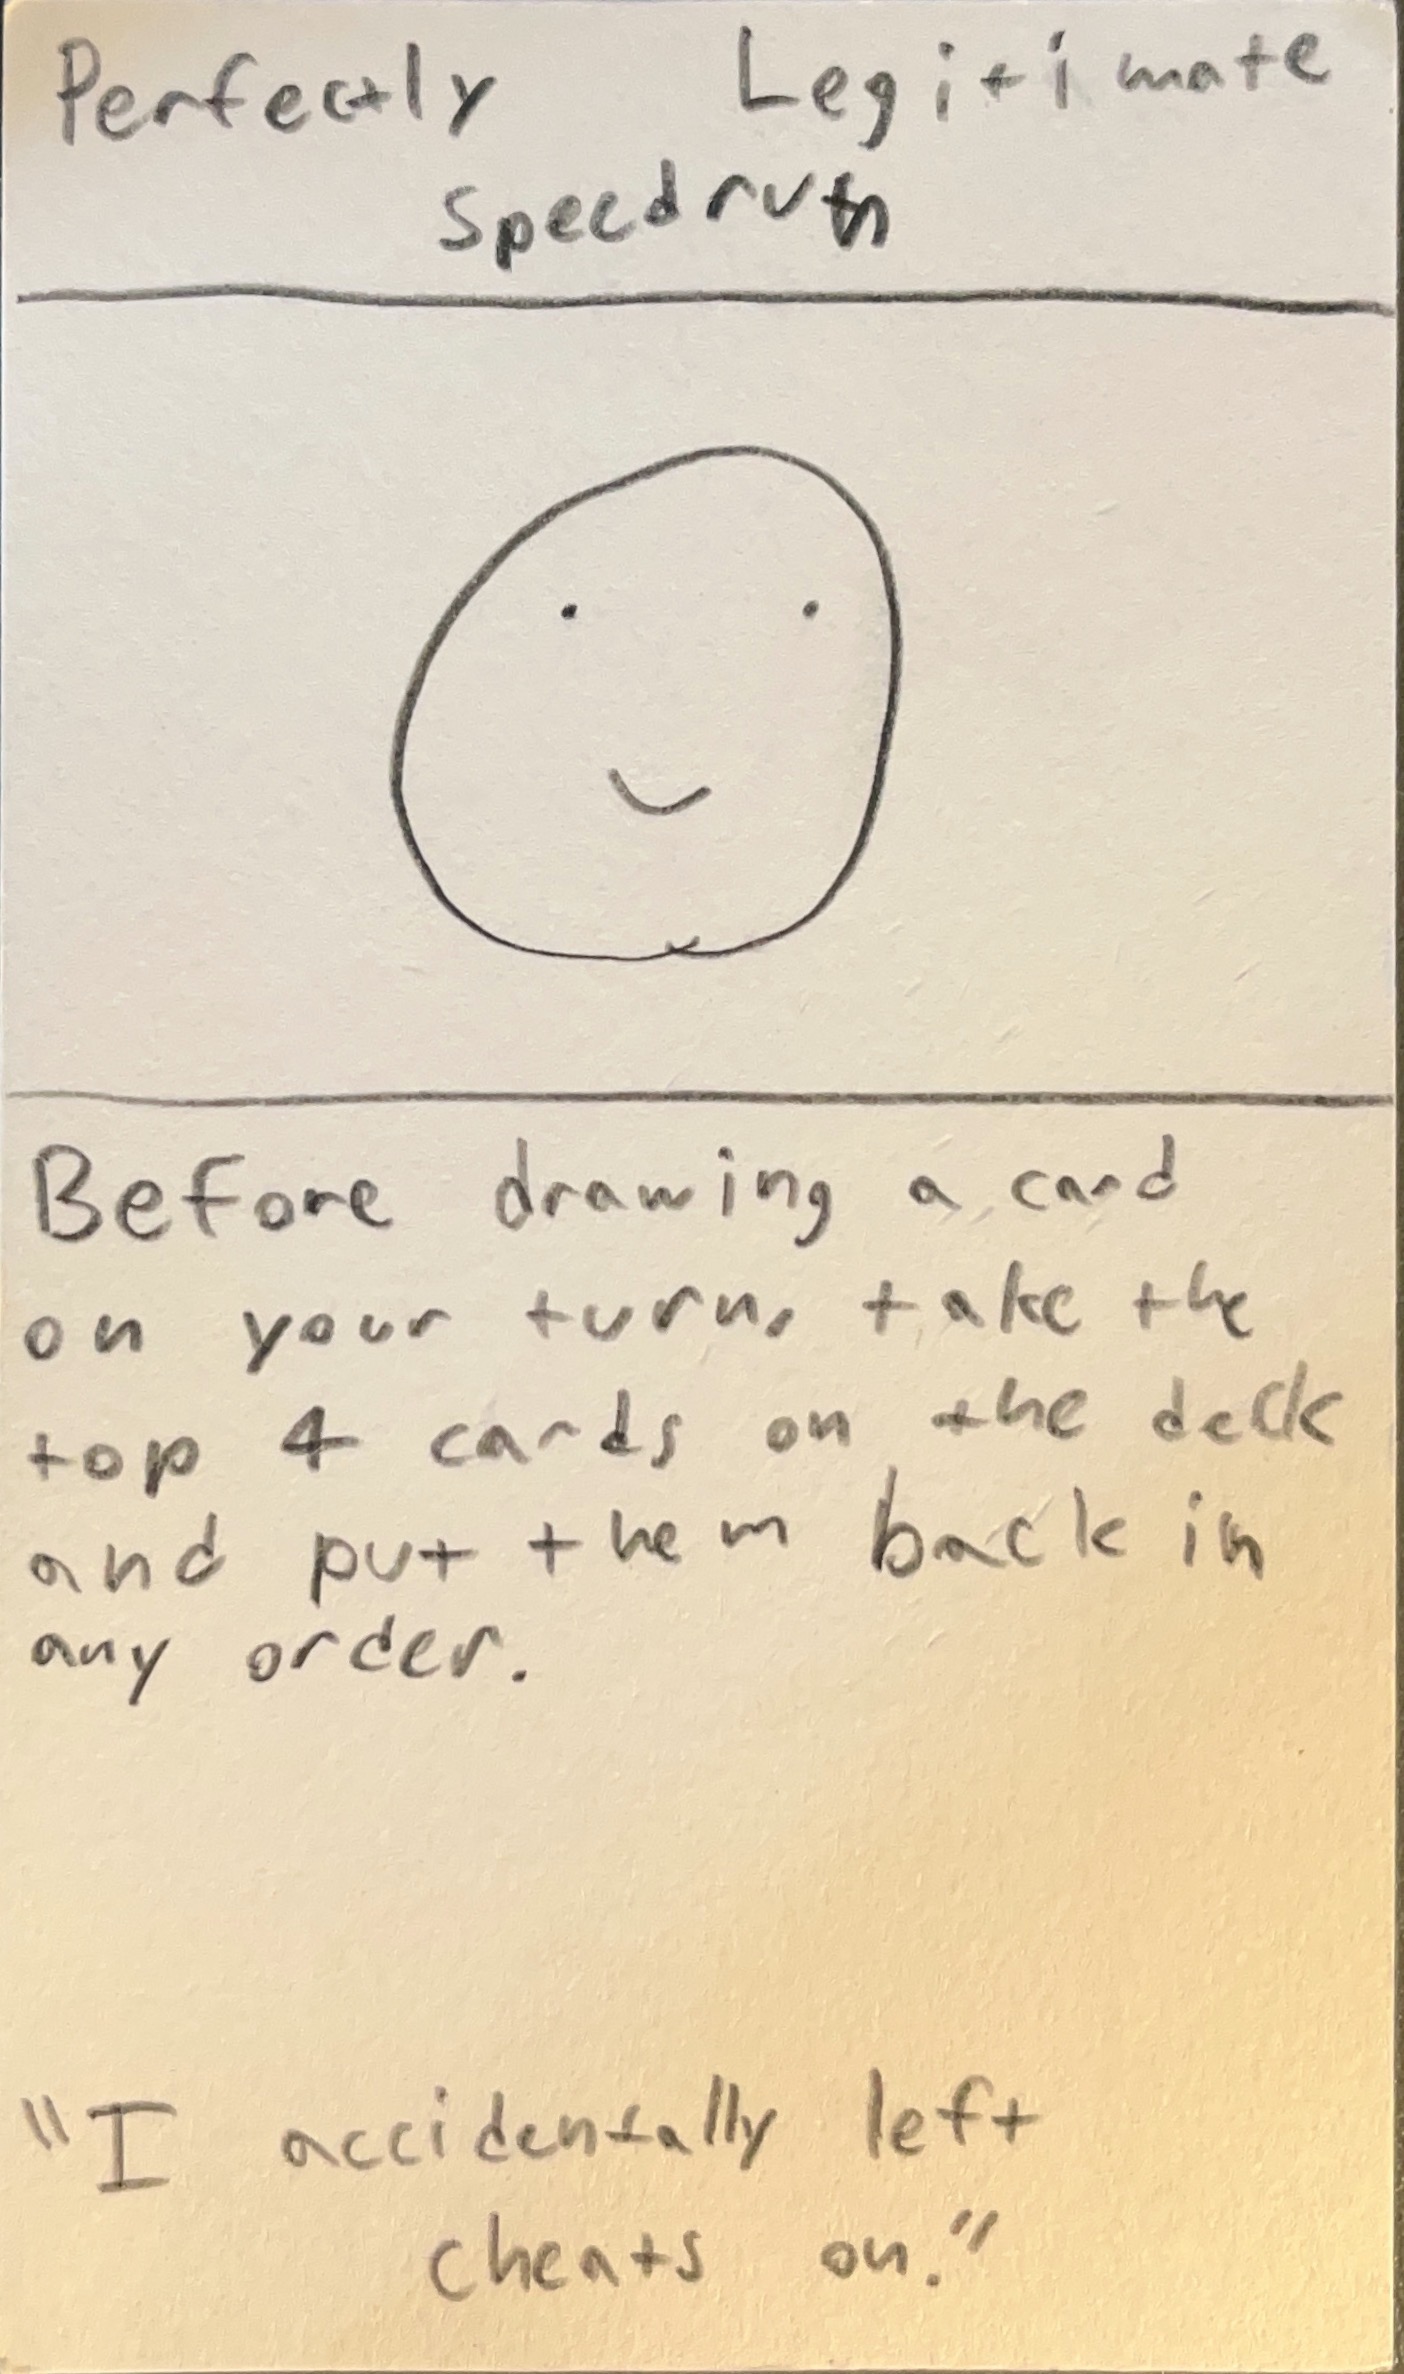 Perfectly Legitimate
Speedrun
Before drawing a card
on your turn, take the
top 4 cards on the deck
and put them back in
any order.
"I accidentally left
cheats on."